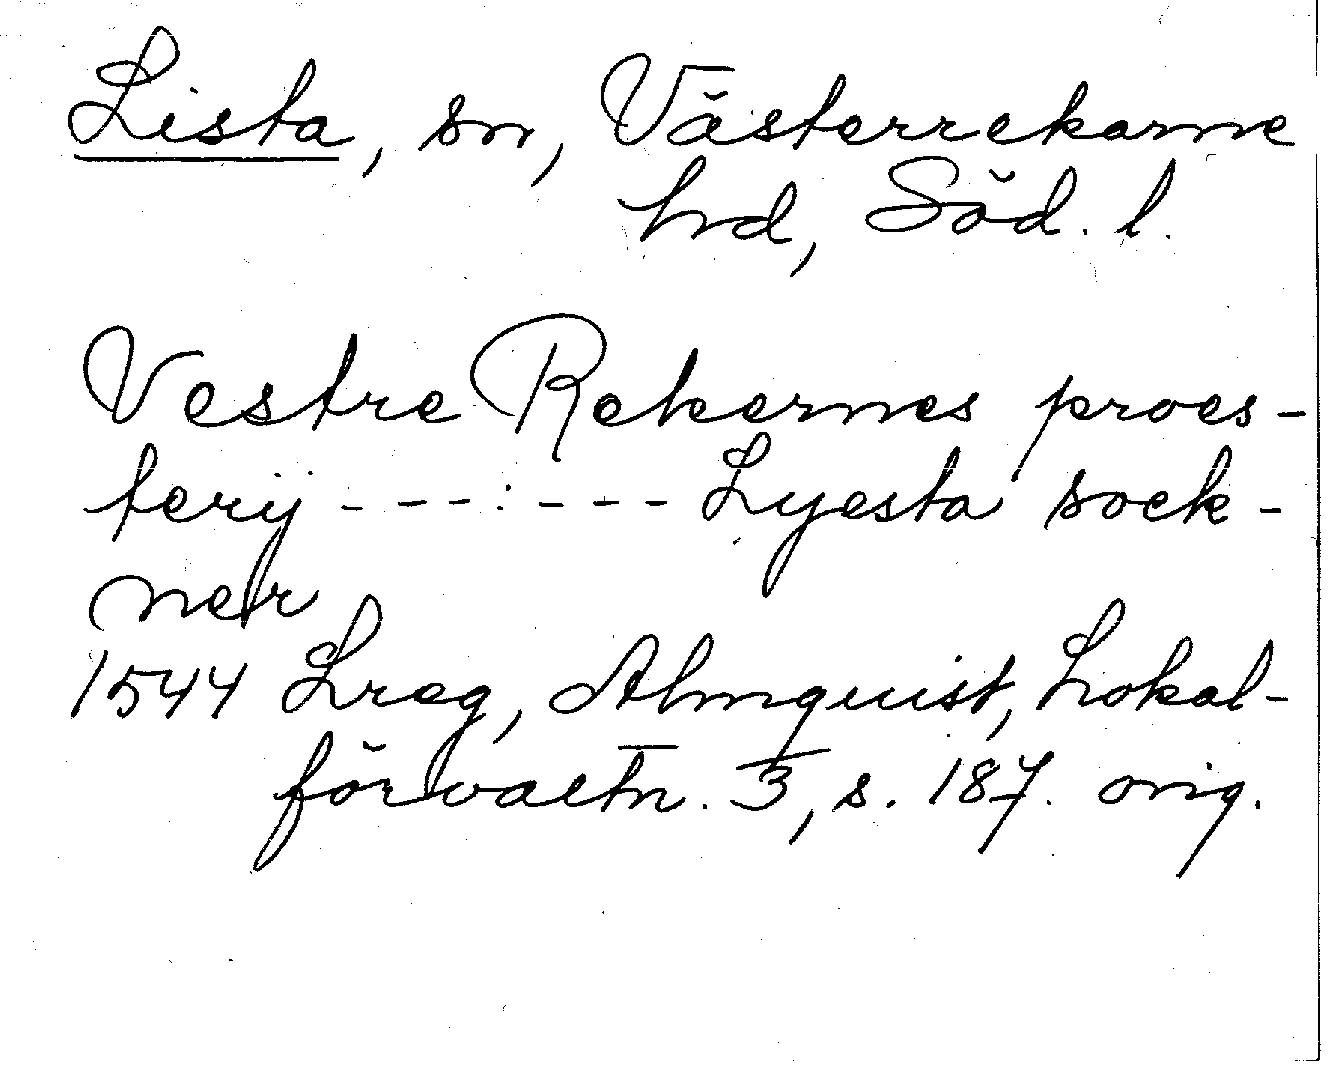 Lista, sn, Västerrekarne
hd, Söd. l.
Vestre Rekernes proes-
terij - - - : - - - Lyesta sock-
ner
1544 Lreg, Almquist, Lokal-
förvaltn. 3, s. 187. orig.